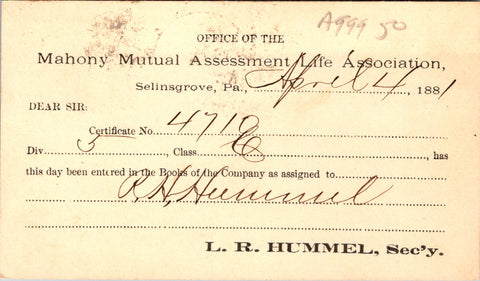 A999 50
OFFICE OF THE
Mahony Mutual Assessment Life Association,
Selinsgrove, Pa., April 4, 1881
DEAR SIR:
Certificate No. 4719
Div. 5, Class E, has
this day been entered in the Books of the Company as assigned to
R. H. Hummel
L. R. HUMMEL, Sec'y.